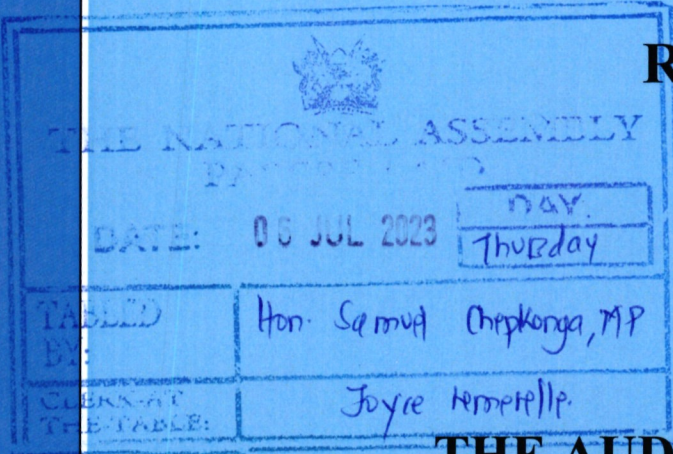 R
THE NATIONAL ASSEMBLY
PAPERS LAID
DATE: 06 JUL 2023 DAY.
Thursday
TABLED BY: Hon. Samuel Chepkonga, MP
CLERK-AT THE-TABLE: Joyce Lemerelle.
THE AUD